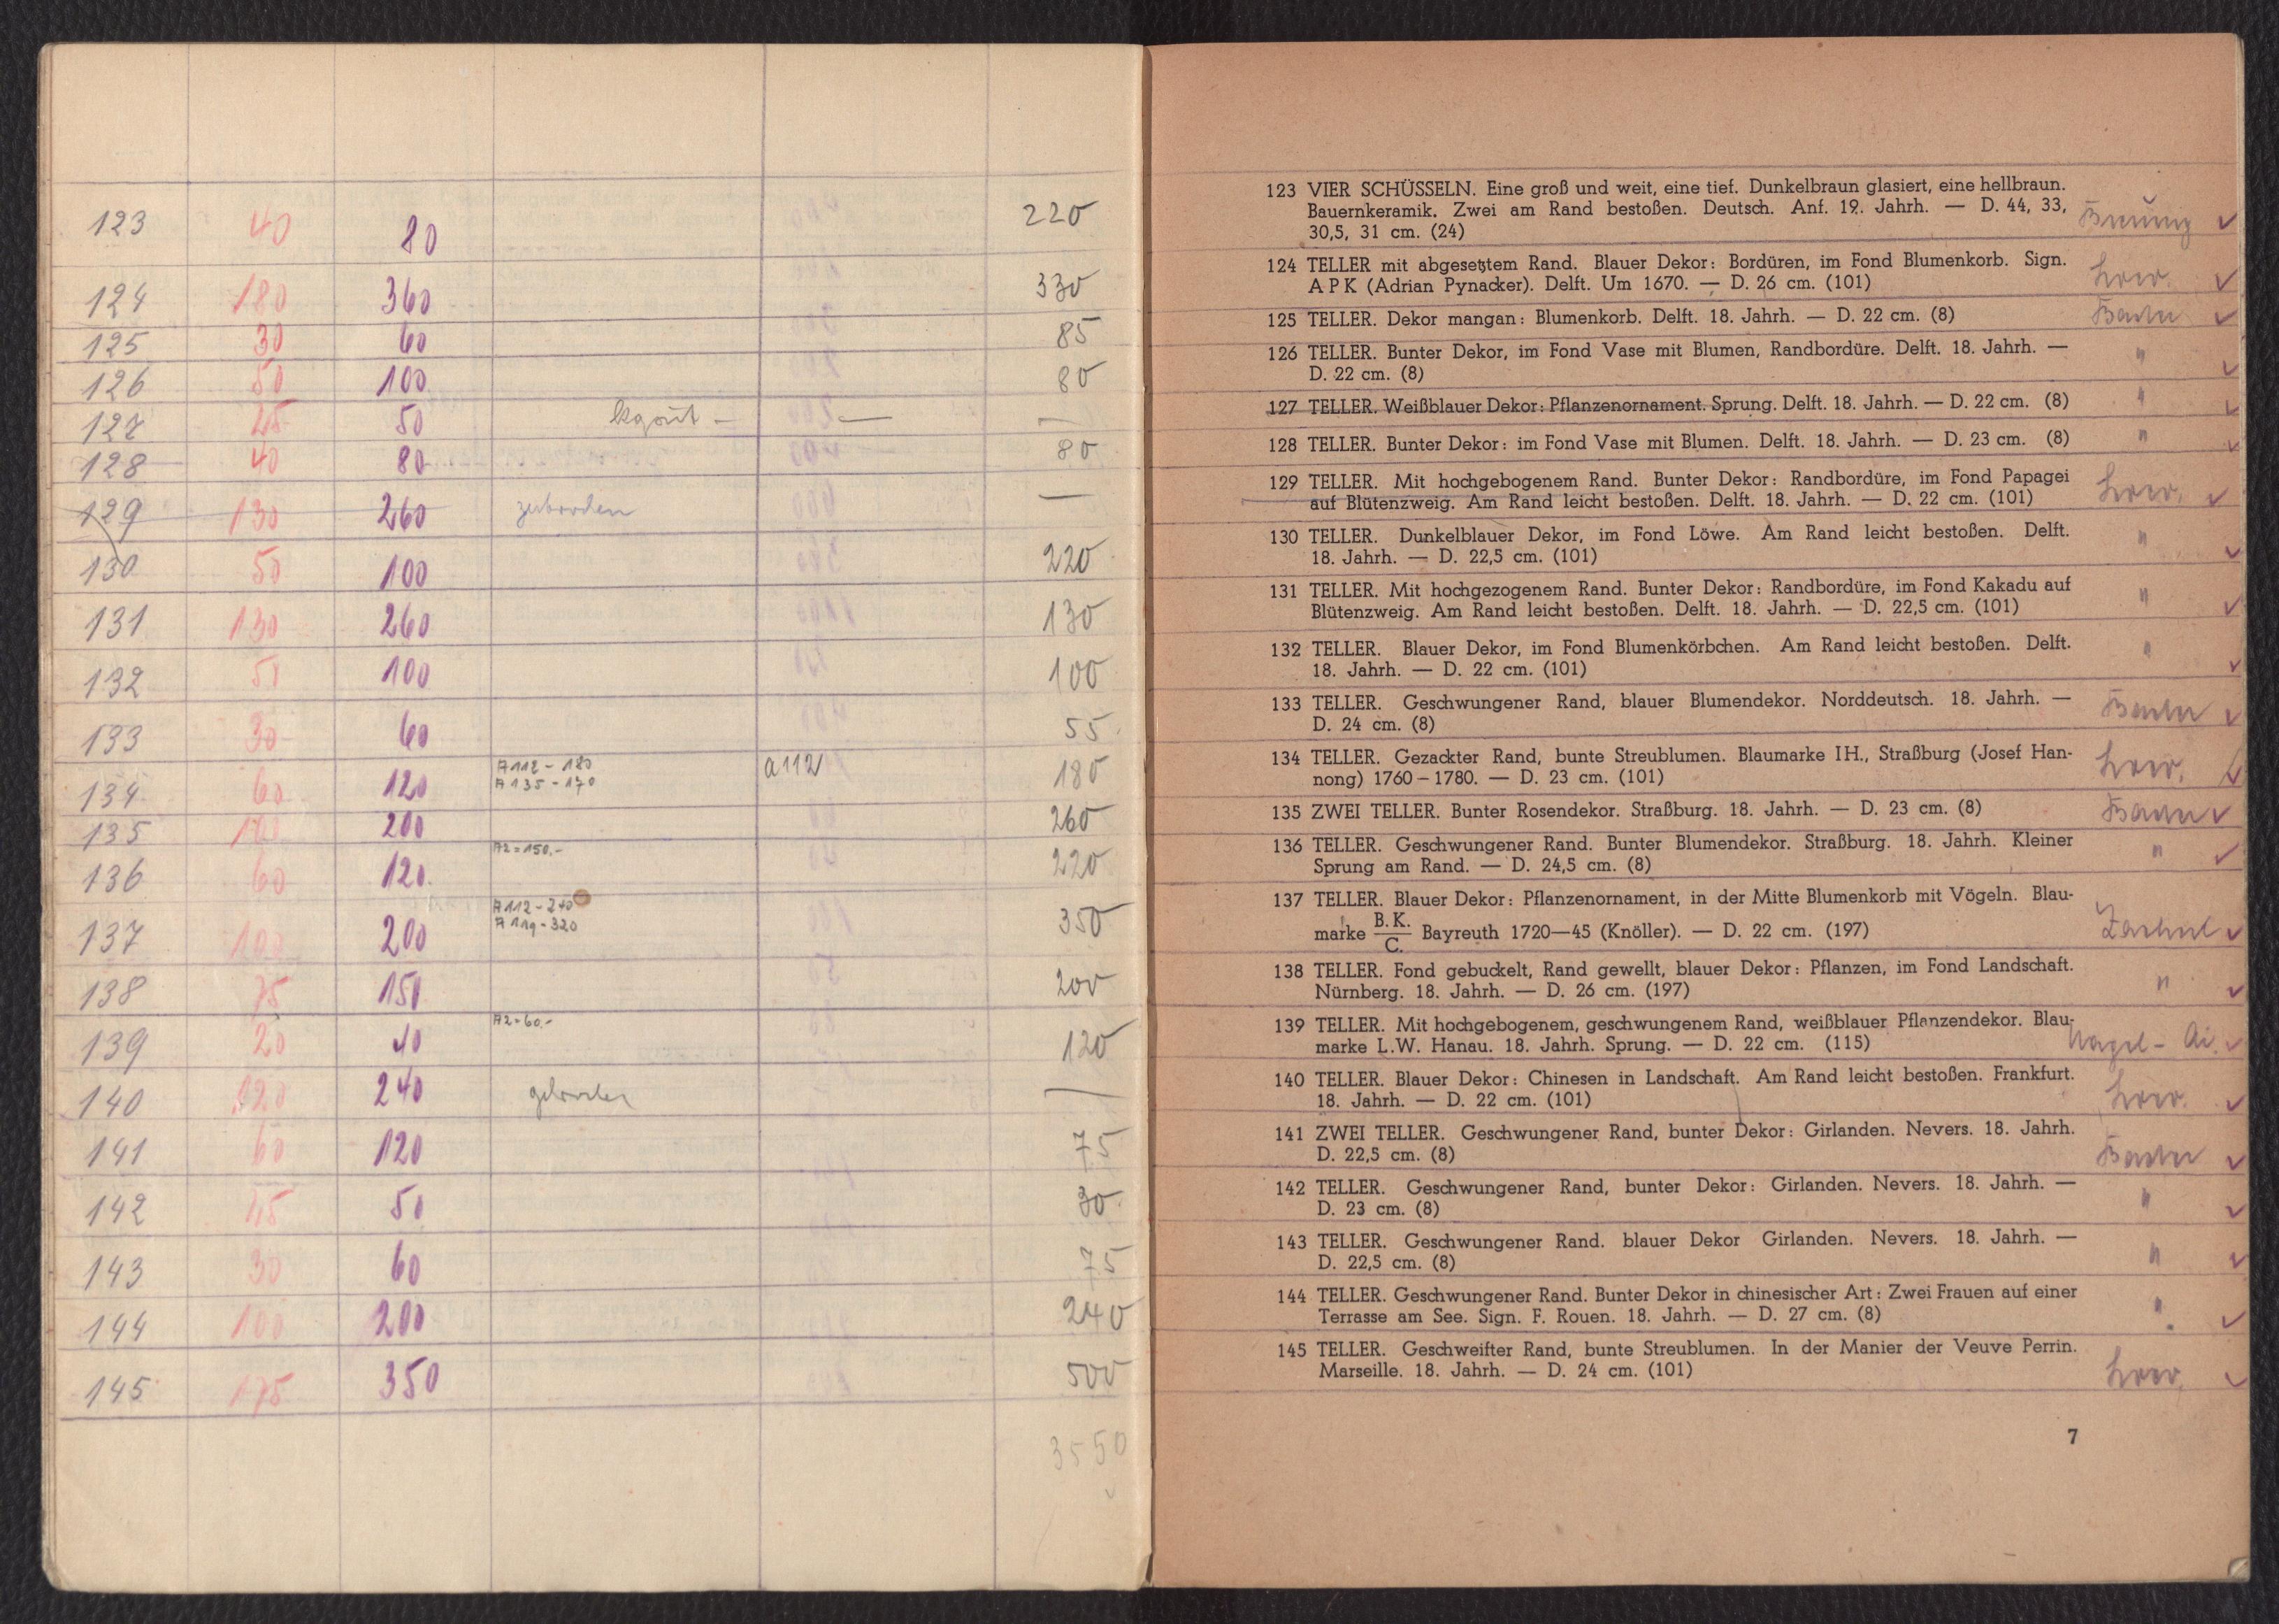 123 40 80 220
124 180 360 330
125 30 60 85
126 50 100 80
127 25 50 — — —
128 40 80 80
129 130 260 —
130 50 100 220
131 130 260 130
132 50 100 100
133 30 60 55
A112 - 180
134 60 120 A135 - 170 a112 180
135 100 200 260
A2 = 150.-
136 60 120 220
A112 - 240
137 100 200 A119 - 320 350
138 75 150 200
A2 = 60.-
139 20 40 120
140 120 240 —
141 60 120 75
142 25 50 30
143 30 60 75
144 100 200 240
145 175 350 500
3550
123 VIER SCHÜSSELN. Eine groß und weit, eine tief. Dunkelbraun glasiert, eine hellbraun.
Bauernkeramik. Zwei am Rand bestoßen. Deutsch. Anf. 19. Jahrh. — D. 44, 33,
30,5, 31 cm. (24)
124 TELLER mit abgesetztem Rand. Blauer Dekor: Bordüren, im Fond Blumenkorb. Sign.
A P K (Adrian Pynacker). Delft. Um 1670. — D. 26 cm. (101)
125 TELLER. Dekor mangan: Blumenkorb. Delft. 18. Jahrh. — D. 22 cm. (8)
126 TELLER. Bunter Dekor, im Fond Vase mit Blumen, Randbordüre. Delft. 18. Jahrh. —
D. 22 cm. (8) "
127 TELLER. Weißblauer Dekor: Pflanzenornament. Sprung. Delft. 18. Jahrh. — D. 22 cm. (8) "
128 TELLER. Bunter Dekor: im Fond Vase mit Blumen. Delft. 18. Jahrh. — D. 23 cm. (8) "
129 TELLER. Mit hochgebogenem Rand. Bunter Dekor: Randbordüre, im Fond Papagei
auf Blütenzweig. Am Rand leicht bestoßen. Delft. 18. Jahrh. — D. 22 cm. (101)
130 TELLER. Dunkelblauer Dekor, im Fond Löwe. Am Rand leicht bestoßen. Delft. "
18. Jahrh. — D. 22,5 cm. (101)
131 TELLER. Mit hochgezogenem Rand. Bunter Dekor: Randbordüre, im Fond Kakadu auf "
Blütenzweig. Am Rand leicht bestoßen. Delft. 18. Jahrh. — D. 22,5 cm. (101)
132 TELLER. Blauer Dekor, im Fond Blumenkörbchen. Am Rand leicht bestoßen. Delft. "
18. Jahrh. — D. 22 cm. (101)
133 TELLER. Geschwungener Rand, blauer Blumendekor. Norddeutsch. 18. Jahrh. —
D. 24 cm. (8)
134 TELLER. Gezackter Rand, bunte Streublumen. Blaumarke IH., Straßburg (Josef Han-
nong) 1760–1780. — D. 23 cm. (101)
135 ZWEI TELLER. Bunter Rosendekor. Straßburg. 18. Jahrh. — D. 23 cm. (8)
136 TELLER. Geschwungener Rand. Bunter Blumendekor. Straßburg. 18. Jahrh. Kleiner "
Sprung am Rand. — D. 24,5 cm. (8)
137 TELLER. Blauer Dekor: Pflanzenornament, in der Mitte Blumenkorb mit Vögeln. Blau-
marke B.K./C. Bayreuth 1720—45 (Knöller). — D. 22 cm. (197)
138 TELLER. Fond gebuckelt, Rand gewellt, blauer Dekor: Pflanzen, im Fond Landschaft. "
Nürnberg. 18. Jahrh. — D. 26 cm. (197)
139 TELLER. Mit hochgebogenem, geschwungenem Rand, weißblauer Pflanzendekor. Blau-
marke L.W. Hanau. 18. Jahrh. Sprung. — D. 22 cm. (115) Nagel -
140 TELLER. Blauer Dekor: Chinesen in Landschaft. Am Rand leicht bestoßen. Frankfurt.
18. Jahrh. — D. 22 cm. (101)
141 ZWEI TELLER. Geschwungener Rand, bunter Dekor: Girlanden. Nevers. 18. Jahrh.
D. 22,5 cm. (8)
142 TELLER. Geschwungener Rand, bunter Dekor: Girlanden. Nevers. 18. Jahrh. —
D. 23 cm. (8) "
143 TELLER. Geschwungener Rand. blauer Dekor Girlanden. Nevers. 18. Jahrh. —
D. 22,5 cm. (8) "
144 TELLER. Geschwungener Rand. Bunter Dekor in chinesischer Art: Zwei Frauen auf einer "
Terrasse am See. Sign. F. Rouen. 18. Jahrh. — D. 27 cm. (8)
145 TELLER. Geschweifter Rand, bunte Streublumen. In der Manier der Veuve Perrin.
Marseille. 18. Jahrh. — D. 24 cm. (101)
7